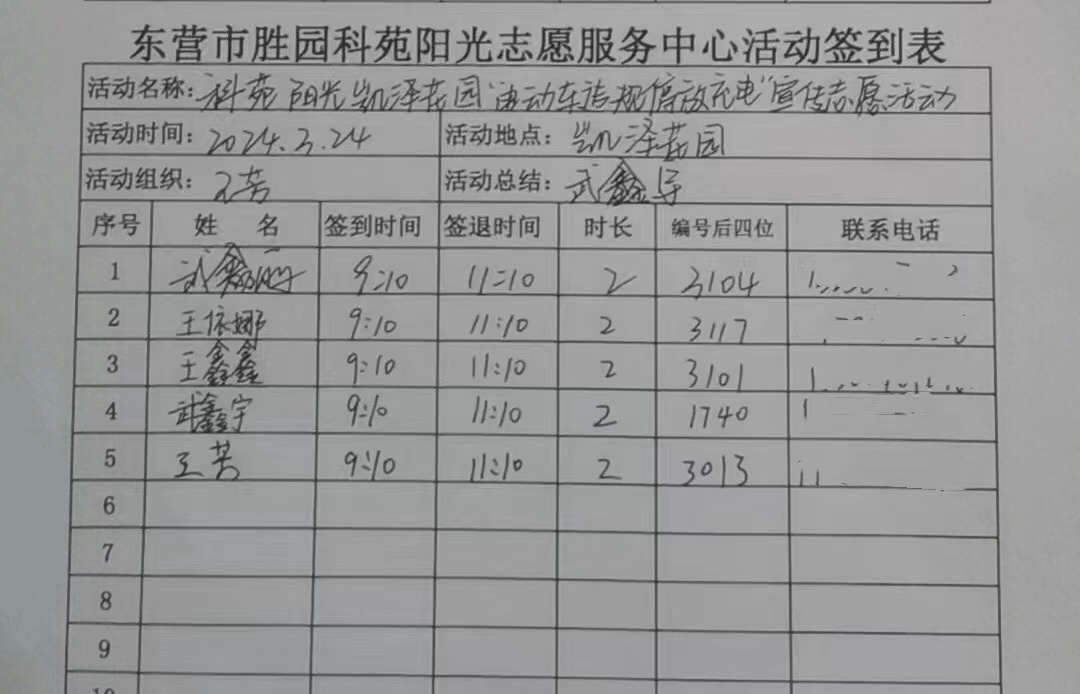 东营市胜园科苑阳光志愿服务中心活动签到表
活动名称：科苑阳光凯泽花园"电动车违规停放充电"宣传志愿活动
活动时间：2024.3.24 活动地点：凯泽花园
活动组织：王芳 活动总结：武鑫宇
序号 姓 名 签到时间 签退时间 时长 编号后四位 联系电话
1 武鑫 9:10 11:10 2 3104
2 王依娜 9:10 11:10 2 3117
3 王鑫鑫 9:10 11:10 2 3101
4 武鑫宇 9:10 11:10 2 1740
5 王芳 9:10 11:10 2 3013
6
7
8
9
10